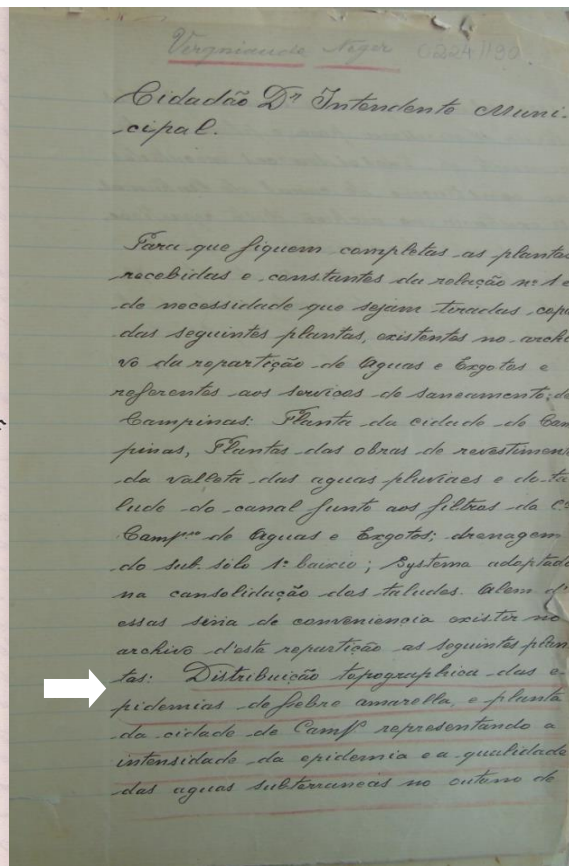 Vergniaude Neger 0224 1190
Cidadão Dr Intendente Muni-
cipal.
Para que fiquem completas as plantas
recebidas e constantes da relação nº 1 é
de necessidade que sejam tiradas copi
das seguintes plantas, existentes no archi
vo da repartição de Aguas e Exgotos e
referentes aos serviços de saneamento de
Campinas: Planta da cidade de Cam
pinas, Plantas das obras de revestiment
da valleta das aguas pluviaes e do ta
lude do canal junto aos filtros da Cª
Campna de Aguas e Exgotos; drenagem
do sub-sólo 1º baixio; Systema adoptado
na consolidação dos taludes. Alem d'
essas seria de conveniencia existir no
archivo d'esta repartição as seguintes plan
tas: Distribuição topographica das e-
pidemias de febre amarella, e planta
da cidade de Campª representando a
intensidade da epidemia e a qualidade
das aguas subterraneas no outono de